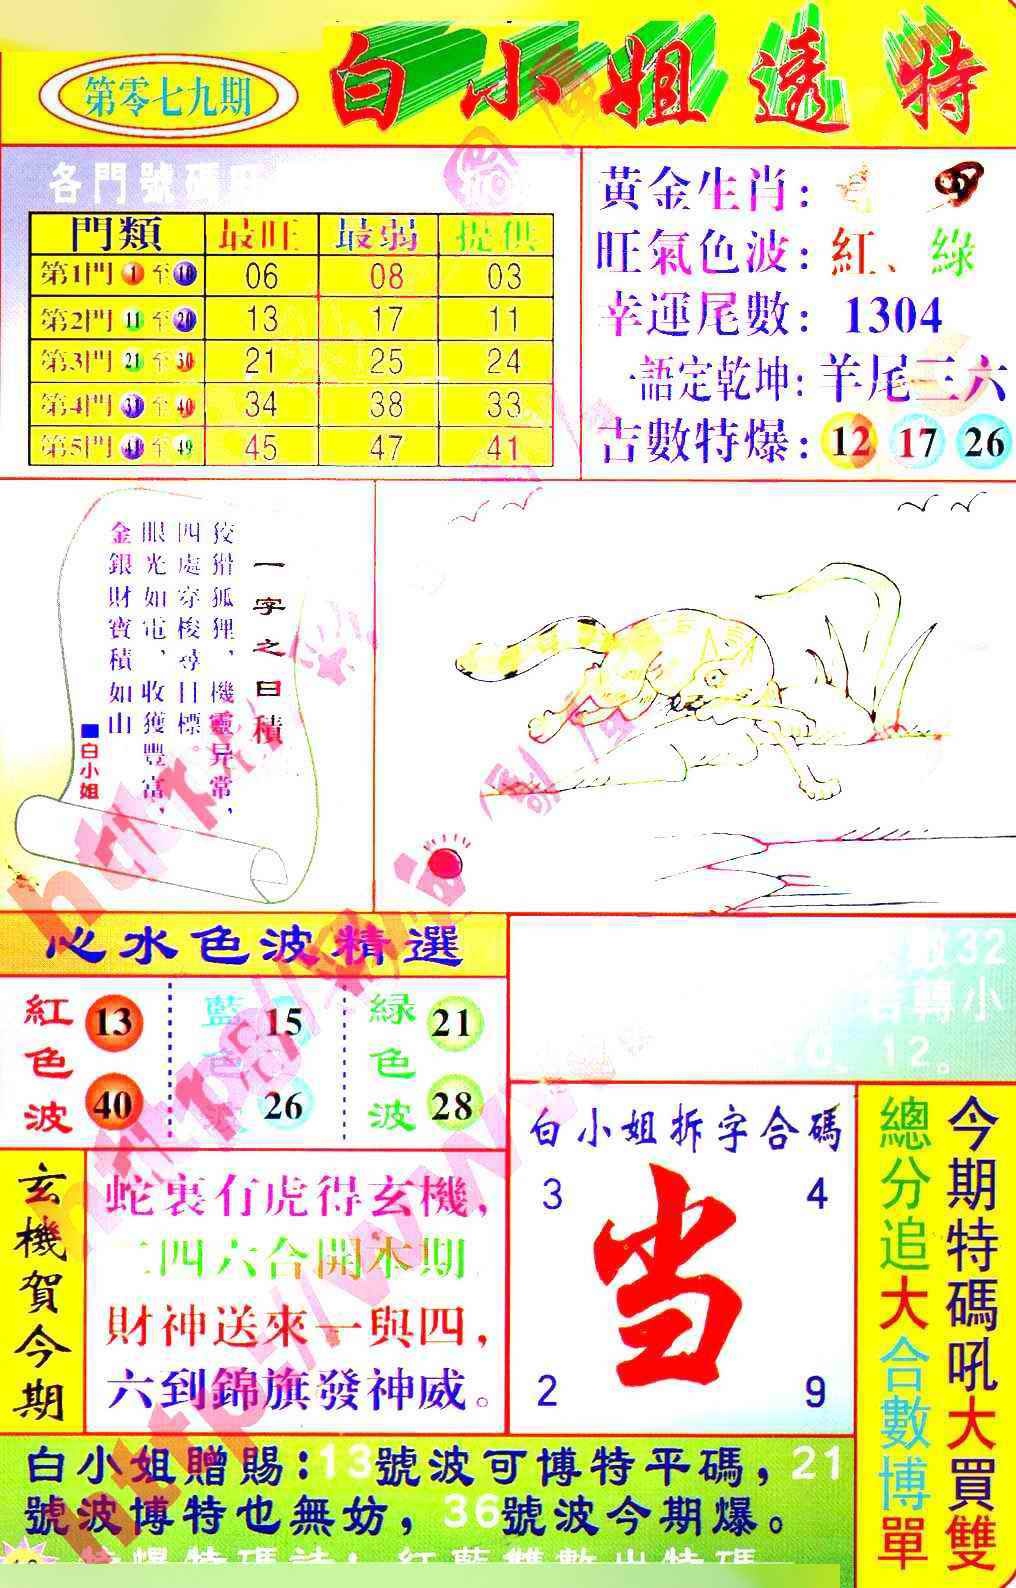 第零七九期
白小姐透特
各門號碼
門類 最旺 最弱 提供
第1門 1 至 10 06 08 03
第2門 11 至 20 13 17 11
第3門 21 至 30 21 25 24
第4門 31 至 40 34 38 33
第5門 41 至 49 45 47 41
黃金生肖：
旺氣色波：紅、綠
幸運尾數：1304
一語定乾坤：羊尾三六
吉數特爆：12 17 26
一字之曰積
狡猾狐狸，機靈异常，
四處穿梭尋目標。
眼光如電，收獲豐富，
金銀財寶積如山
■白小姐
心水色波精選
紅色波 13 40
藍色波 15 26
綠色波 21 28
32
轉小
12。
玄機賀今期
蛇裏有虎得玄機，
二四六合開本期
財神送來一與四，
六到錦旗發神威。
白小姐拆字合碼
3 4
当
2 9
今期特碼吼大買雙
總分追大合數博單
白小姐贈賜：13號波可博特平碼，21
號波博特也無妨，36號波今期爆。